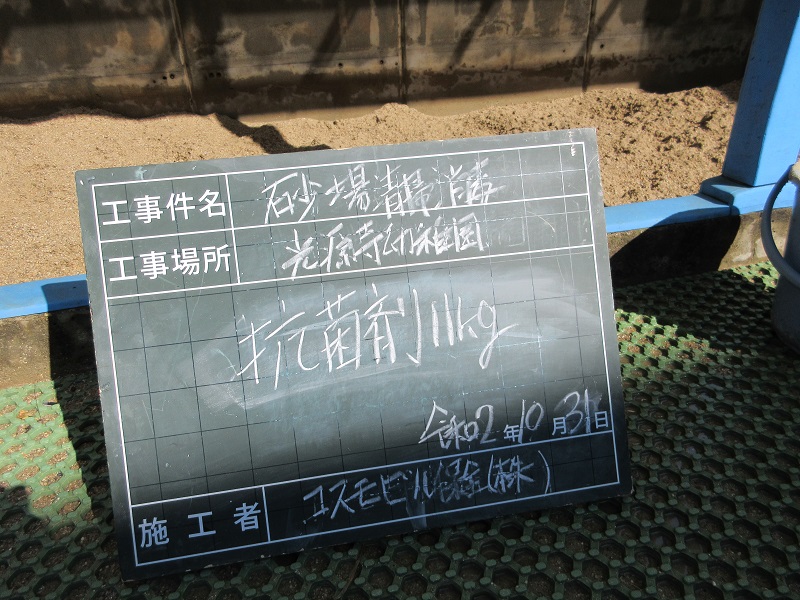 工事件名 砂場清掃消毒
工事場所 光原寺幼稚園
抗菌剤 11kg
令和2年10月31日
施工者 コスモビル保全(株)